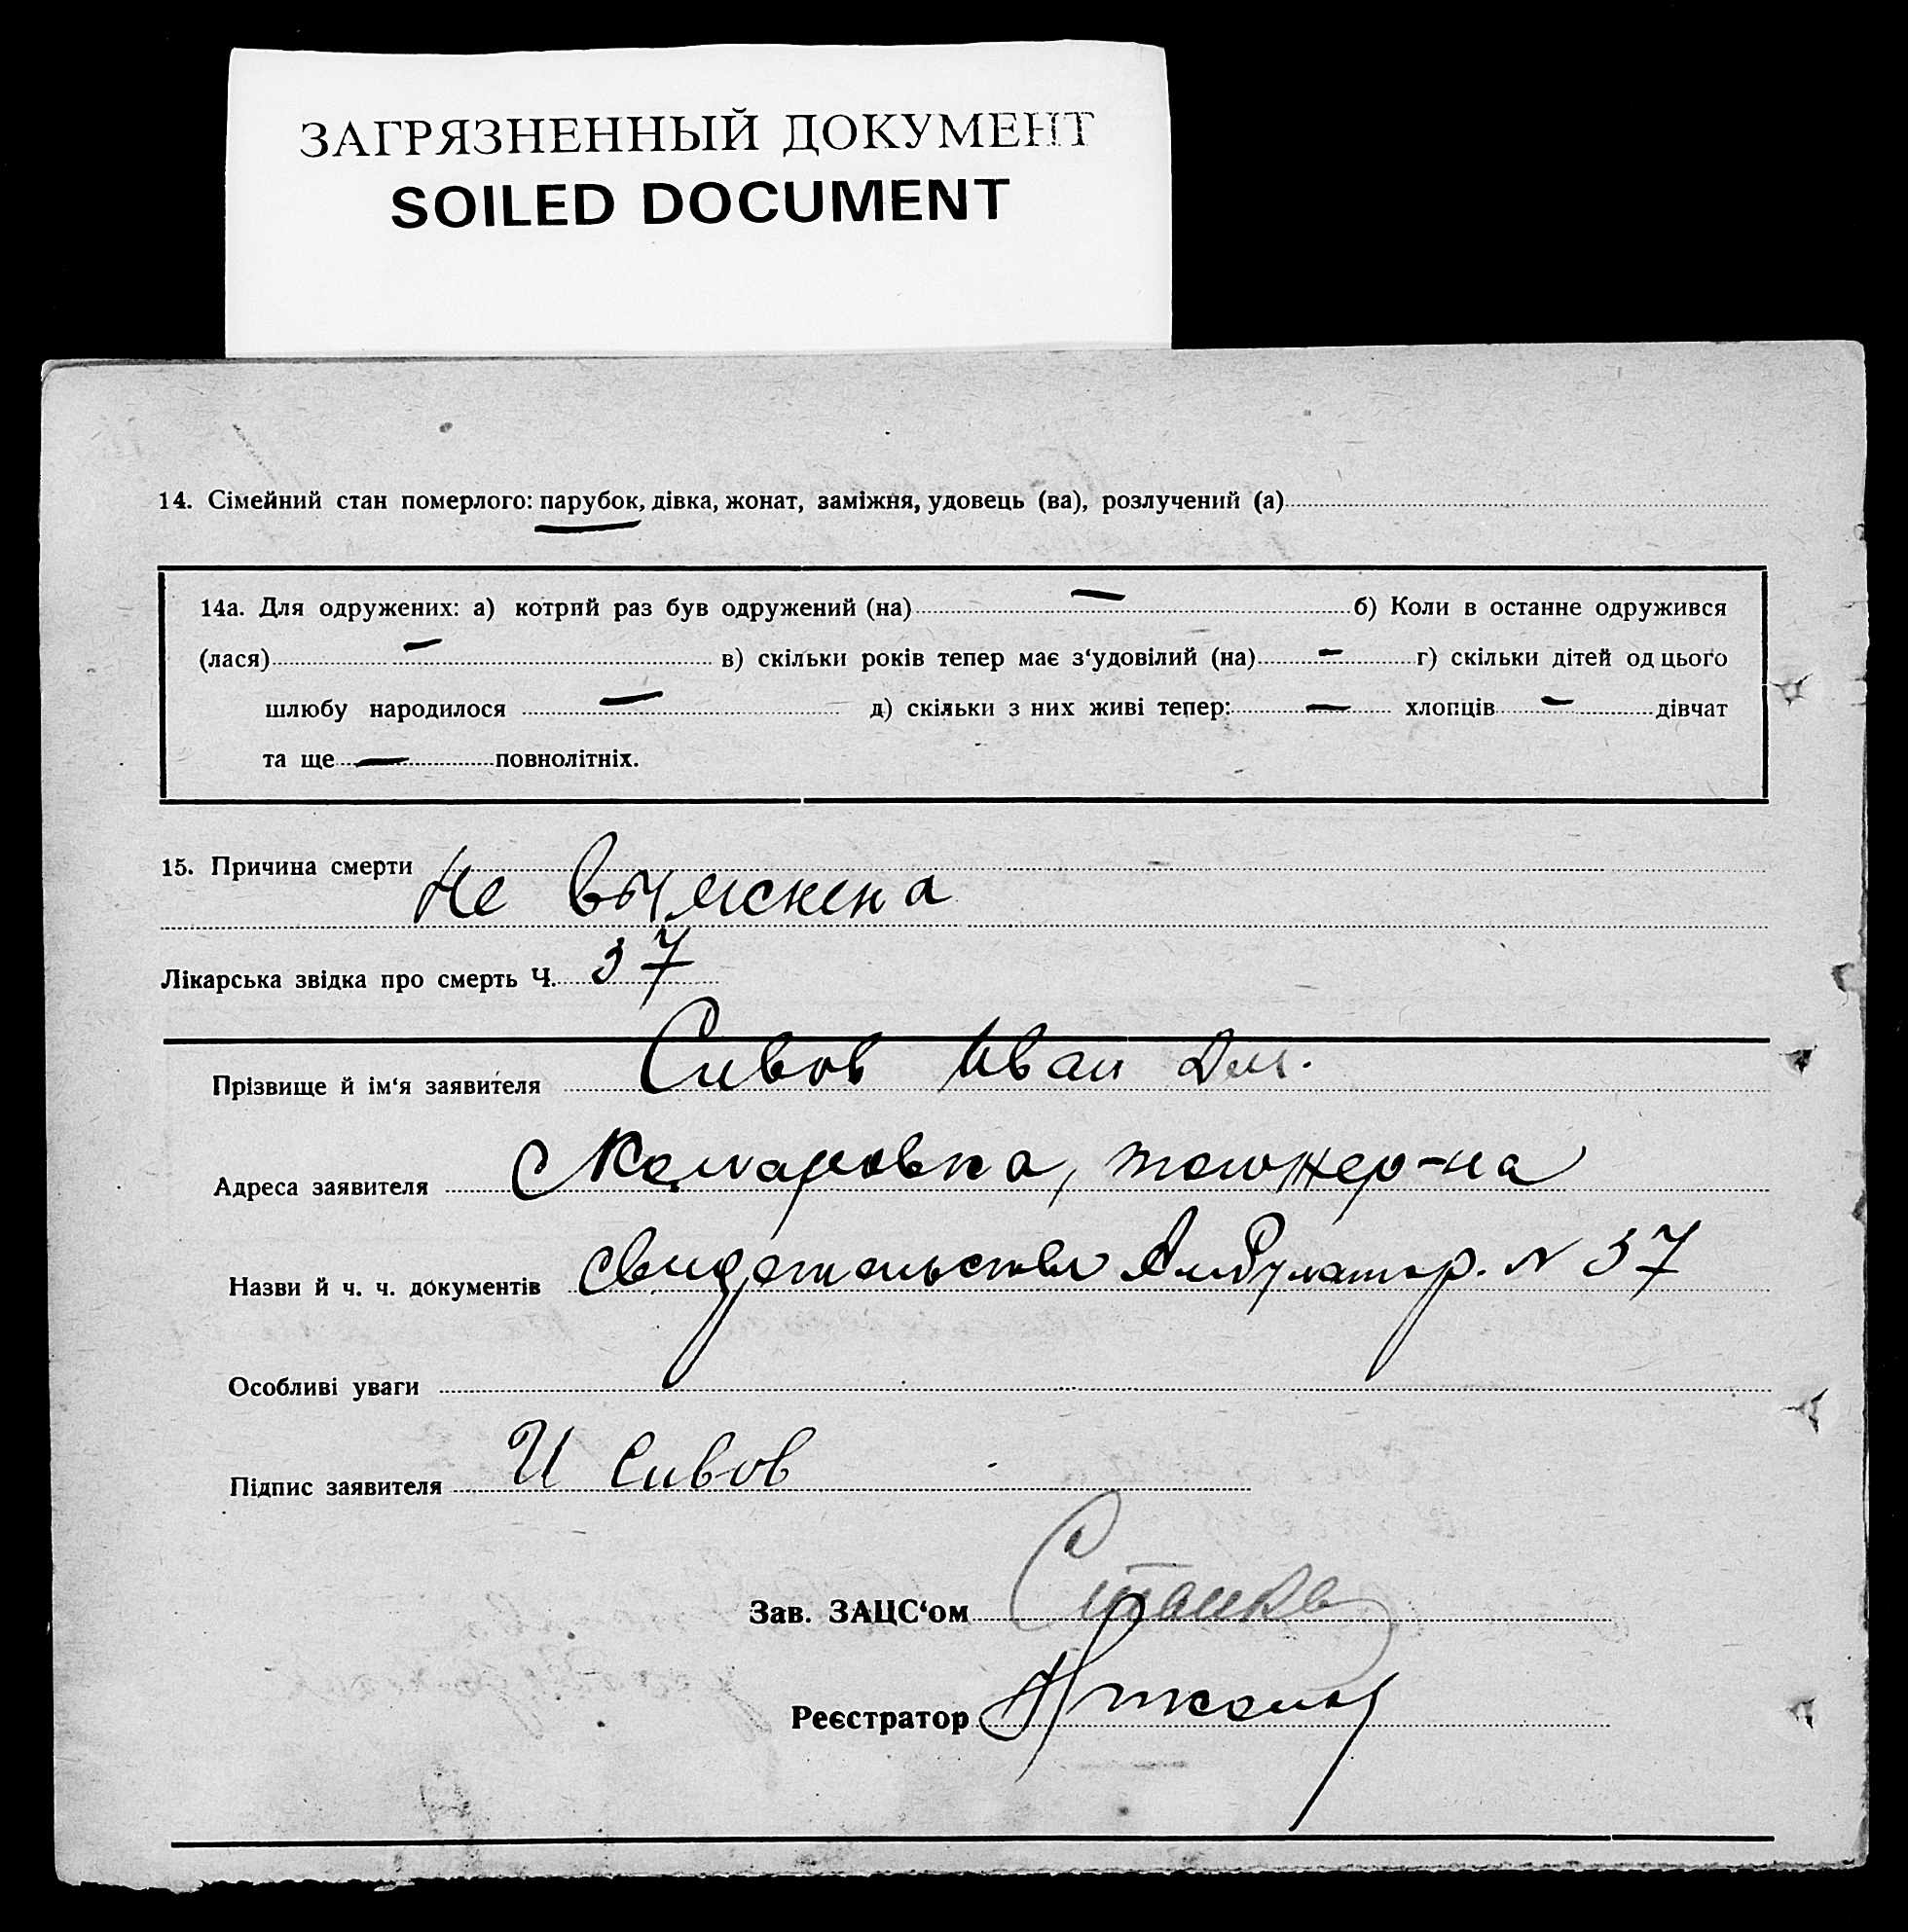 ЗАГРЯЗНЕННЫЙ ДОКУМЕНТ
SOILED DOCUMENT
14. Сімейний стан померлого: парубок, дівка, жонат, заміжня, удовець (ва), розлучений (а)
14а. Для одружених: а) котрий раз був одружений (на) — б) Коли в останнє одружився
(лася) — в) скільки років тепер має з‘удовілий (на) — г) скільки дітей од цього
шлюбу народилося — д) скільки з них живі тепер: — хлопців — дівчат
та ще — повнолітніх.
15. Причина смерти
Не выяснена
Лікарська звідка про смерть Ч. 37
Прізвище й ім‘я заявителя Сивов Иван Дм.
Адреса заявителя с Комаровка,
Назви й ч. ч. документів свидетельство Амбулатор. N 37
Особливі уваги
Підпис заявителя И Сивов
Зав. ЗАЦС‘ом
Реєстратор